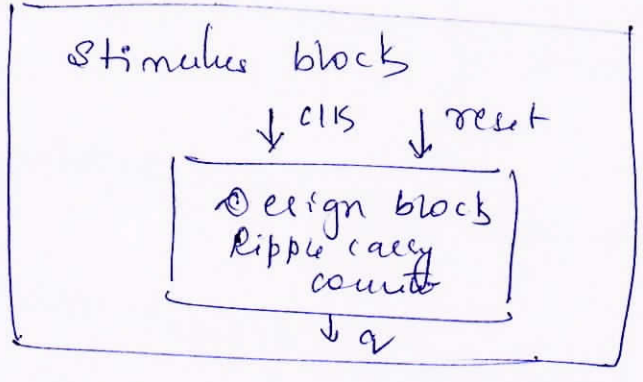 Stimulus block
clk reset
Design block
Ripple carry
counter
q